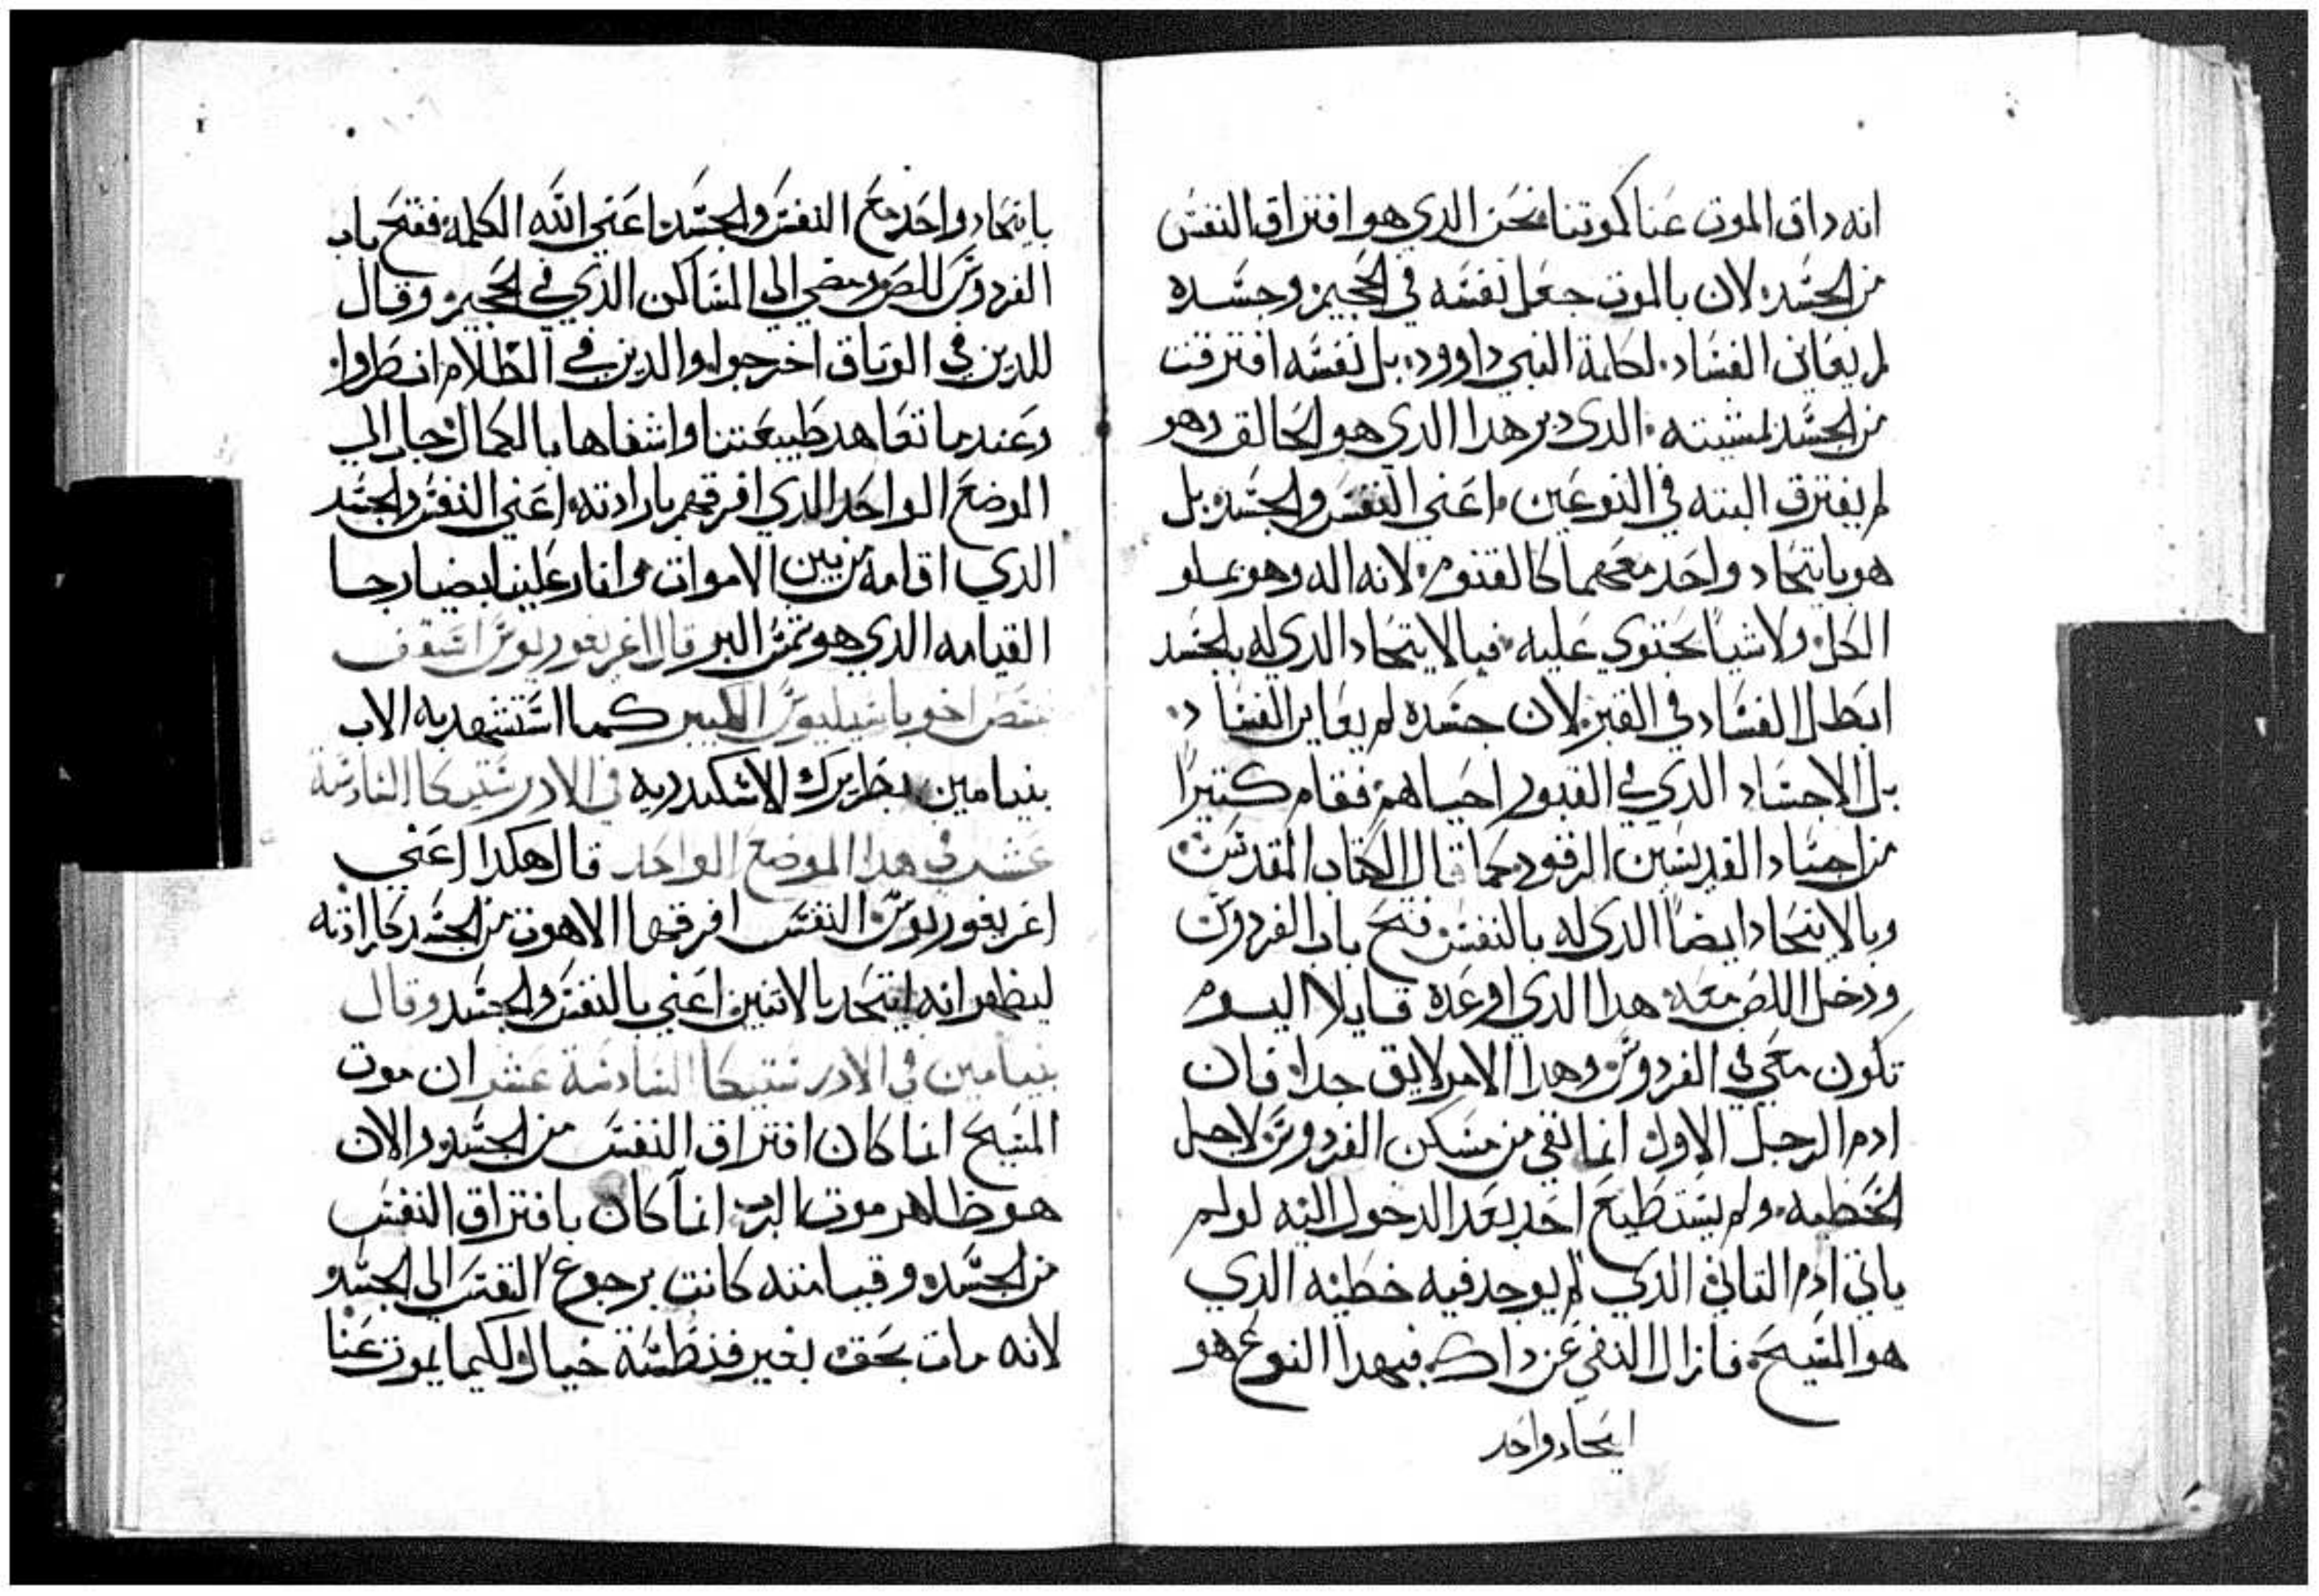 انه داق الموت عنا كموتنا نحن الدي هو افتراق النفس
من الجسد لان بالموت جعل نفسه في الجحيم وجسده
لم يعاين الفساد لكلمة النبي داوود بل نفسه افترقت
من الجسد بمشيته الدي دبر هدا الدي هو الخالق وهو
لم يفترق البته في النوعين اعني النفس والجسد بل
هو باتحاد واحد معهما كالقنوم لانه اله وهو يملو
الكل ولا شيا يحتوي عليه فبالاتحاد الدي له بالجسد
ابطل الفساد في القبر لان جسده لم يعاين الفساد
بل الاجساد الدي في القبور احياهم فقام كتيرا
من اجساد القديسين الرقود كما قال الكتاب المقدس
وبالاتحاد ايضا الدي له بالنفس فتح باب الفردوس
ودخل اللص معه هدا الدي اوعده قايلا اليوم
تكون معي في الفردوس وهدا الامر لايق جدا فان
ادم الرجل الاول انما نفي من مسكن الفردوس لاجل
الخطيه ولم يستطيع احد بعد الدخول اليه لو لم
ياتي ادم التاني الدي لم يوجد فيه خطيه الدي
هو المسيح فازال النفي عن داك فبهدا النوع هو
اتحاد واحد
باتحاد واحد مع النفس والجسد اعني الله الكلمة ففتح باب
الفردوس للص ومضي الي المساكن الدي في الجحيم وقال
للدين في الوتاق اخرجوا والدين في الظلام انظروا
وعندما تعاهد طبيعتنا واشفاها بالكمال جا الي
الوضع الواحد الدي افرقهم بارادته اعني النفس والجسد
الدي اقامه من بين الاموات وانار علينا ايضا رجا
القيامه الدي هو شمس البر قال اغريغوريوس اسقف
اخو باسيليوس الكبير كما استشهد به الاب
بنيامين بطريرك الاسكندريه في الادرستيكا السادسة
عشر في هدا الموضع الواحد قال هكدا اعني
اغريغوريوس النفس افرقها الاهوت من الجسد كارادته
ليظهر انه اتحد بالاتنين اعني بالنفس والجسد وقال
بنيامين في الادرستيكا السادسة عشر ان موت
المسيح انما كان افتراق النفس من الجسد والان
هو ظاهر موت الرب انما كان بافتراق النفس
من الجسد وقيامته كانت برجوع النفس الي الجسد
لانه مات بحق بغير فنطسة خيال لكيما يموت عنا